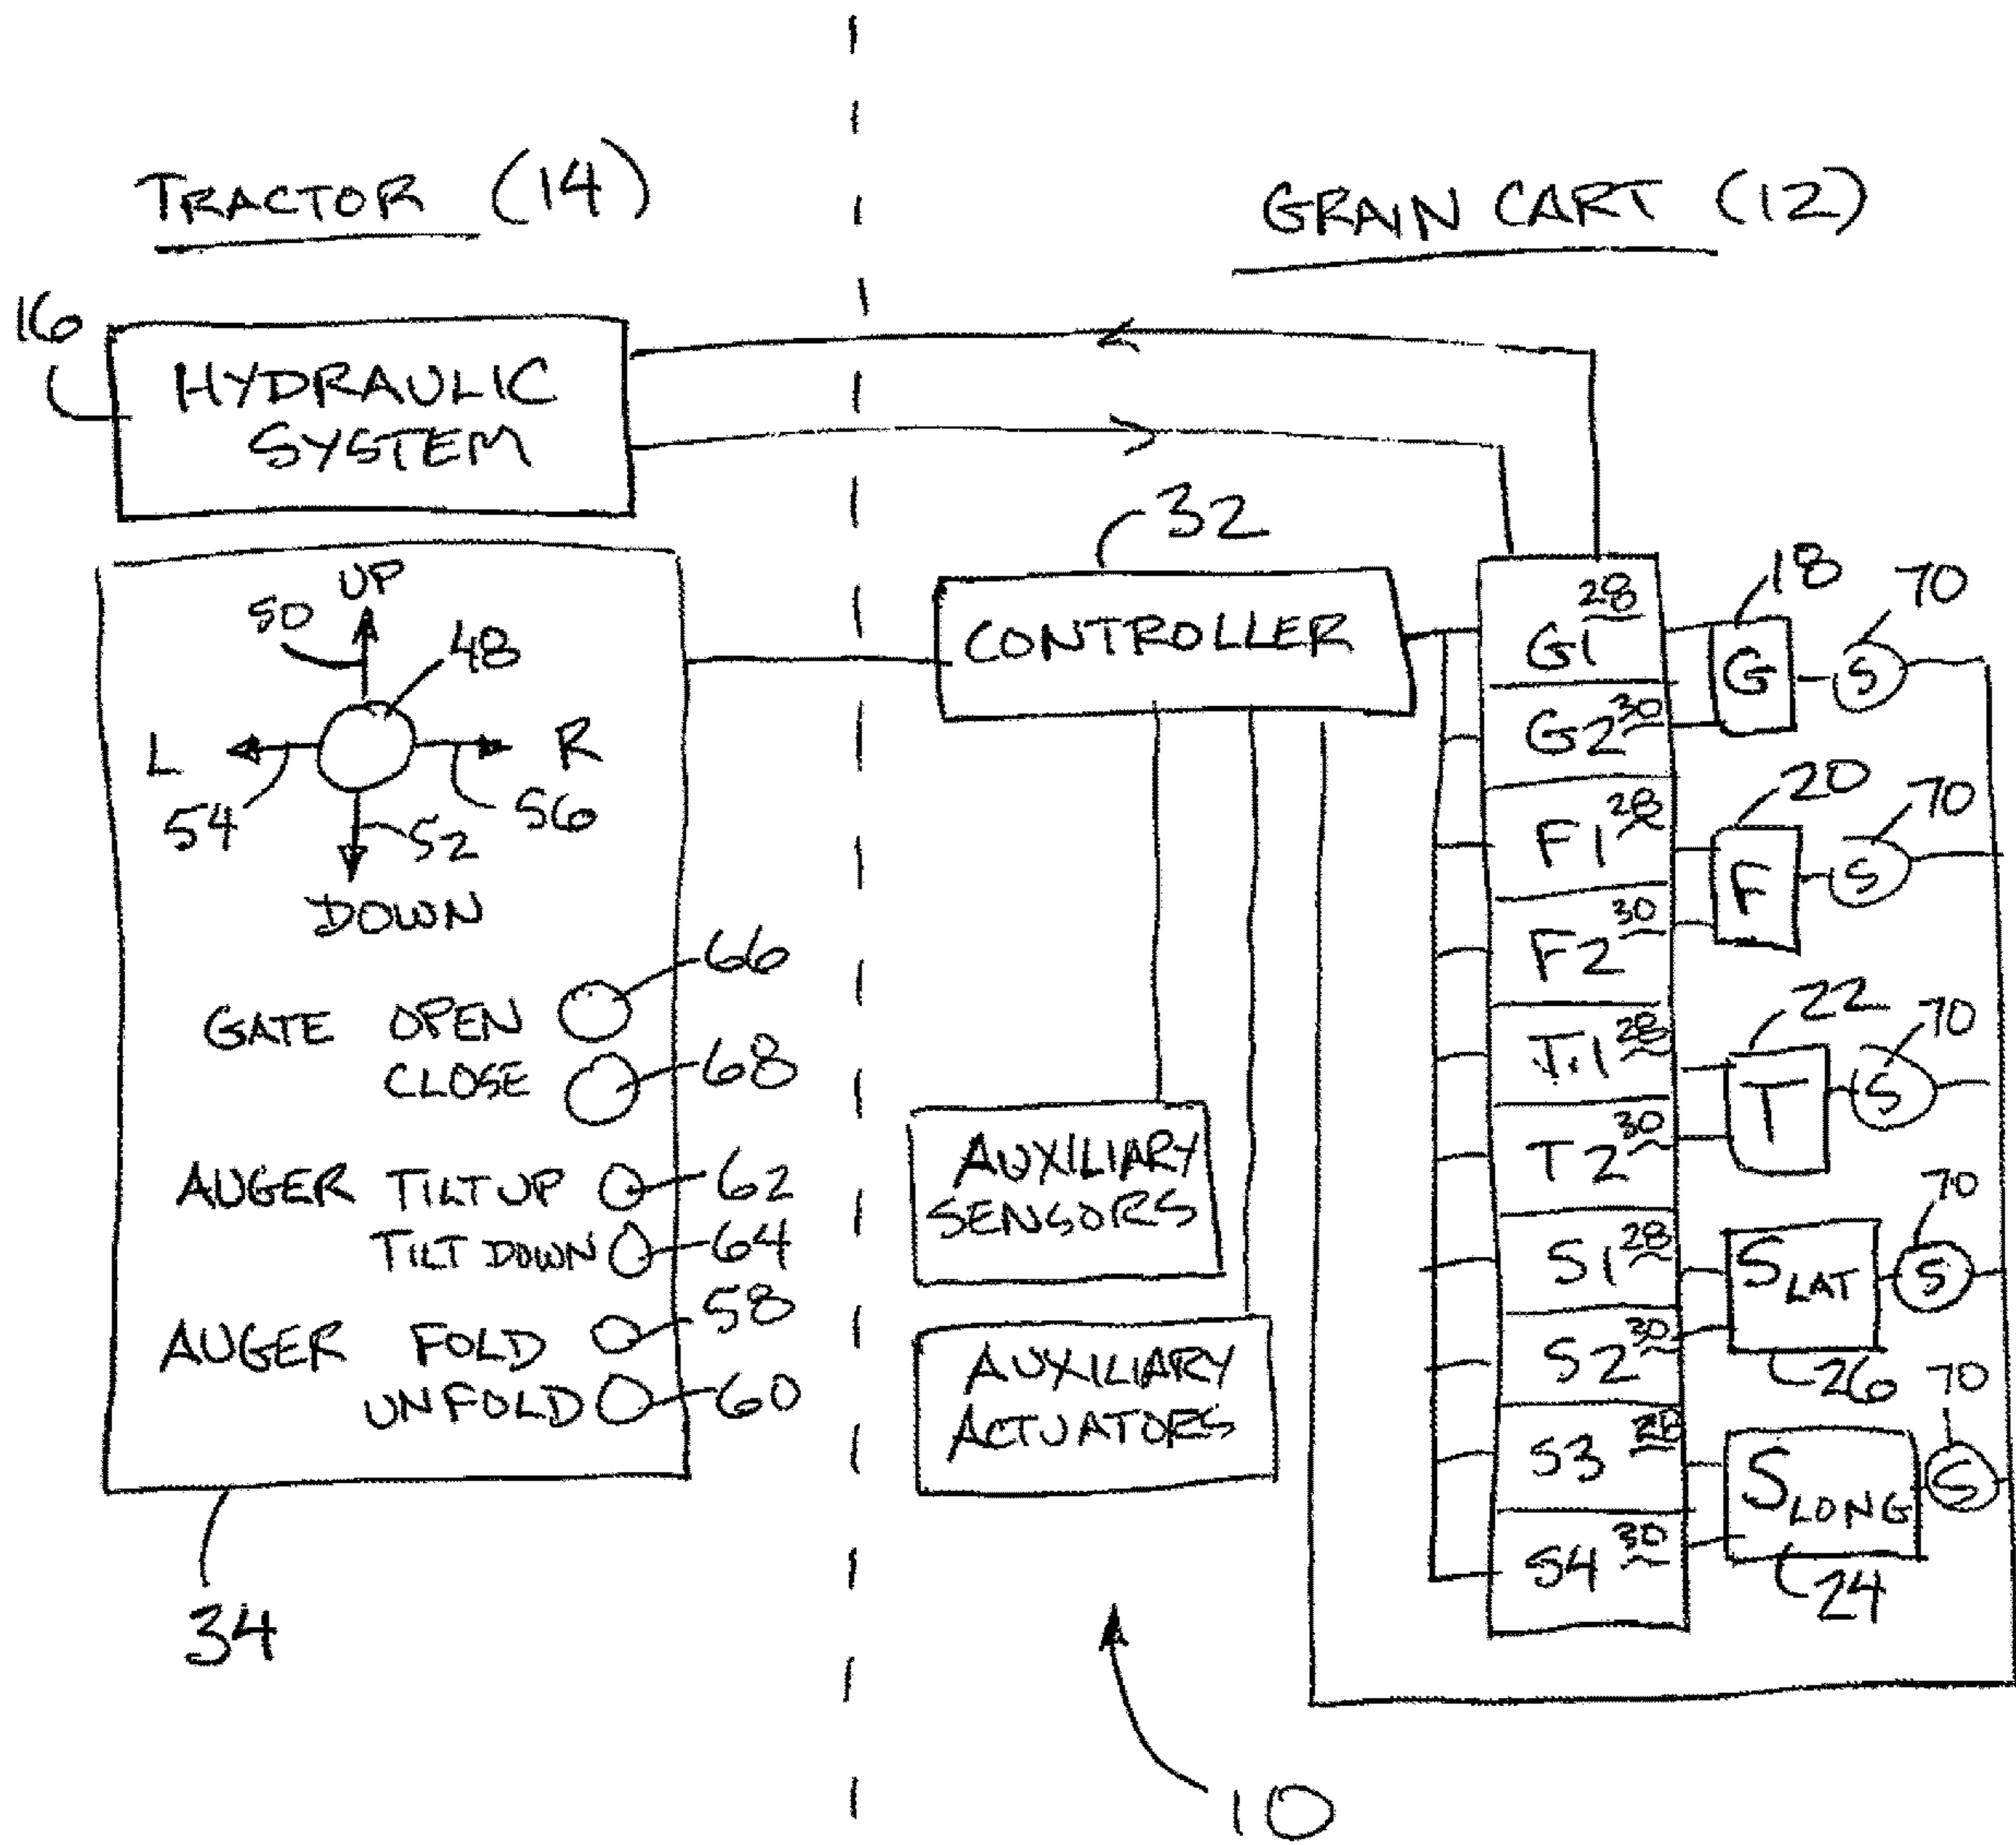 TRACTOR (14)
GRAIN CART (12)
16
HYDRAULIC
SYSTEM
32
CONTROLLER
UP
50
48
L
R
54
56
52
DOWN
GATE OPEN
66
CLOSE
68
AUGER TILT UP
62
TILT DOWN
64
AUGER FOLD
58
UNFOLD
60
34
AUXILIARY
SENSORS
AUXILIARY
ACTUATORS
G1 28
G2 30
F1 28
F2 30
T1 28
T2 30
S1 28
S2 30
S3 28
S4 30
18
70
G
S
20
70
F
S
22
70
T
S
70
SLAT
S
26
70
SLONG
S
24
10